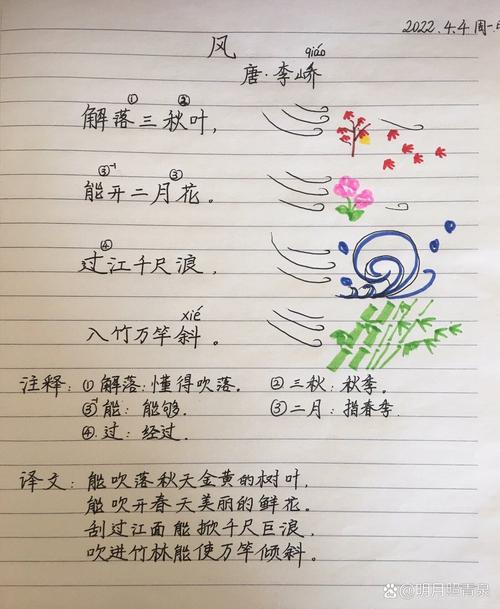 2022.4.4 周一
风
qiáo
唐·李峤
① ②
解落三秋叶，
③⁻¹ ③
能开二月花。
④
过江千尺浪，
xié
入竹万竿斜。
注释：①解落：懂得吹落。 ②三秋：秋季。
③⁻¹能：能够。 ③二月：指春季.
④过：经过.
译文：能吹落秋天金黄的树叶，
能吹开春天美丽的鲜花。
刮过江面能掀千尺巨浪，
吹进竹林能使万竿倾斜。
@明月照青泉